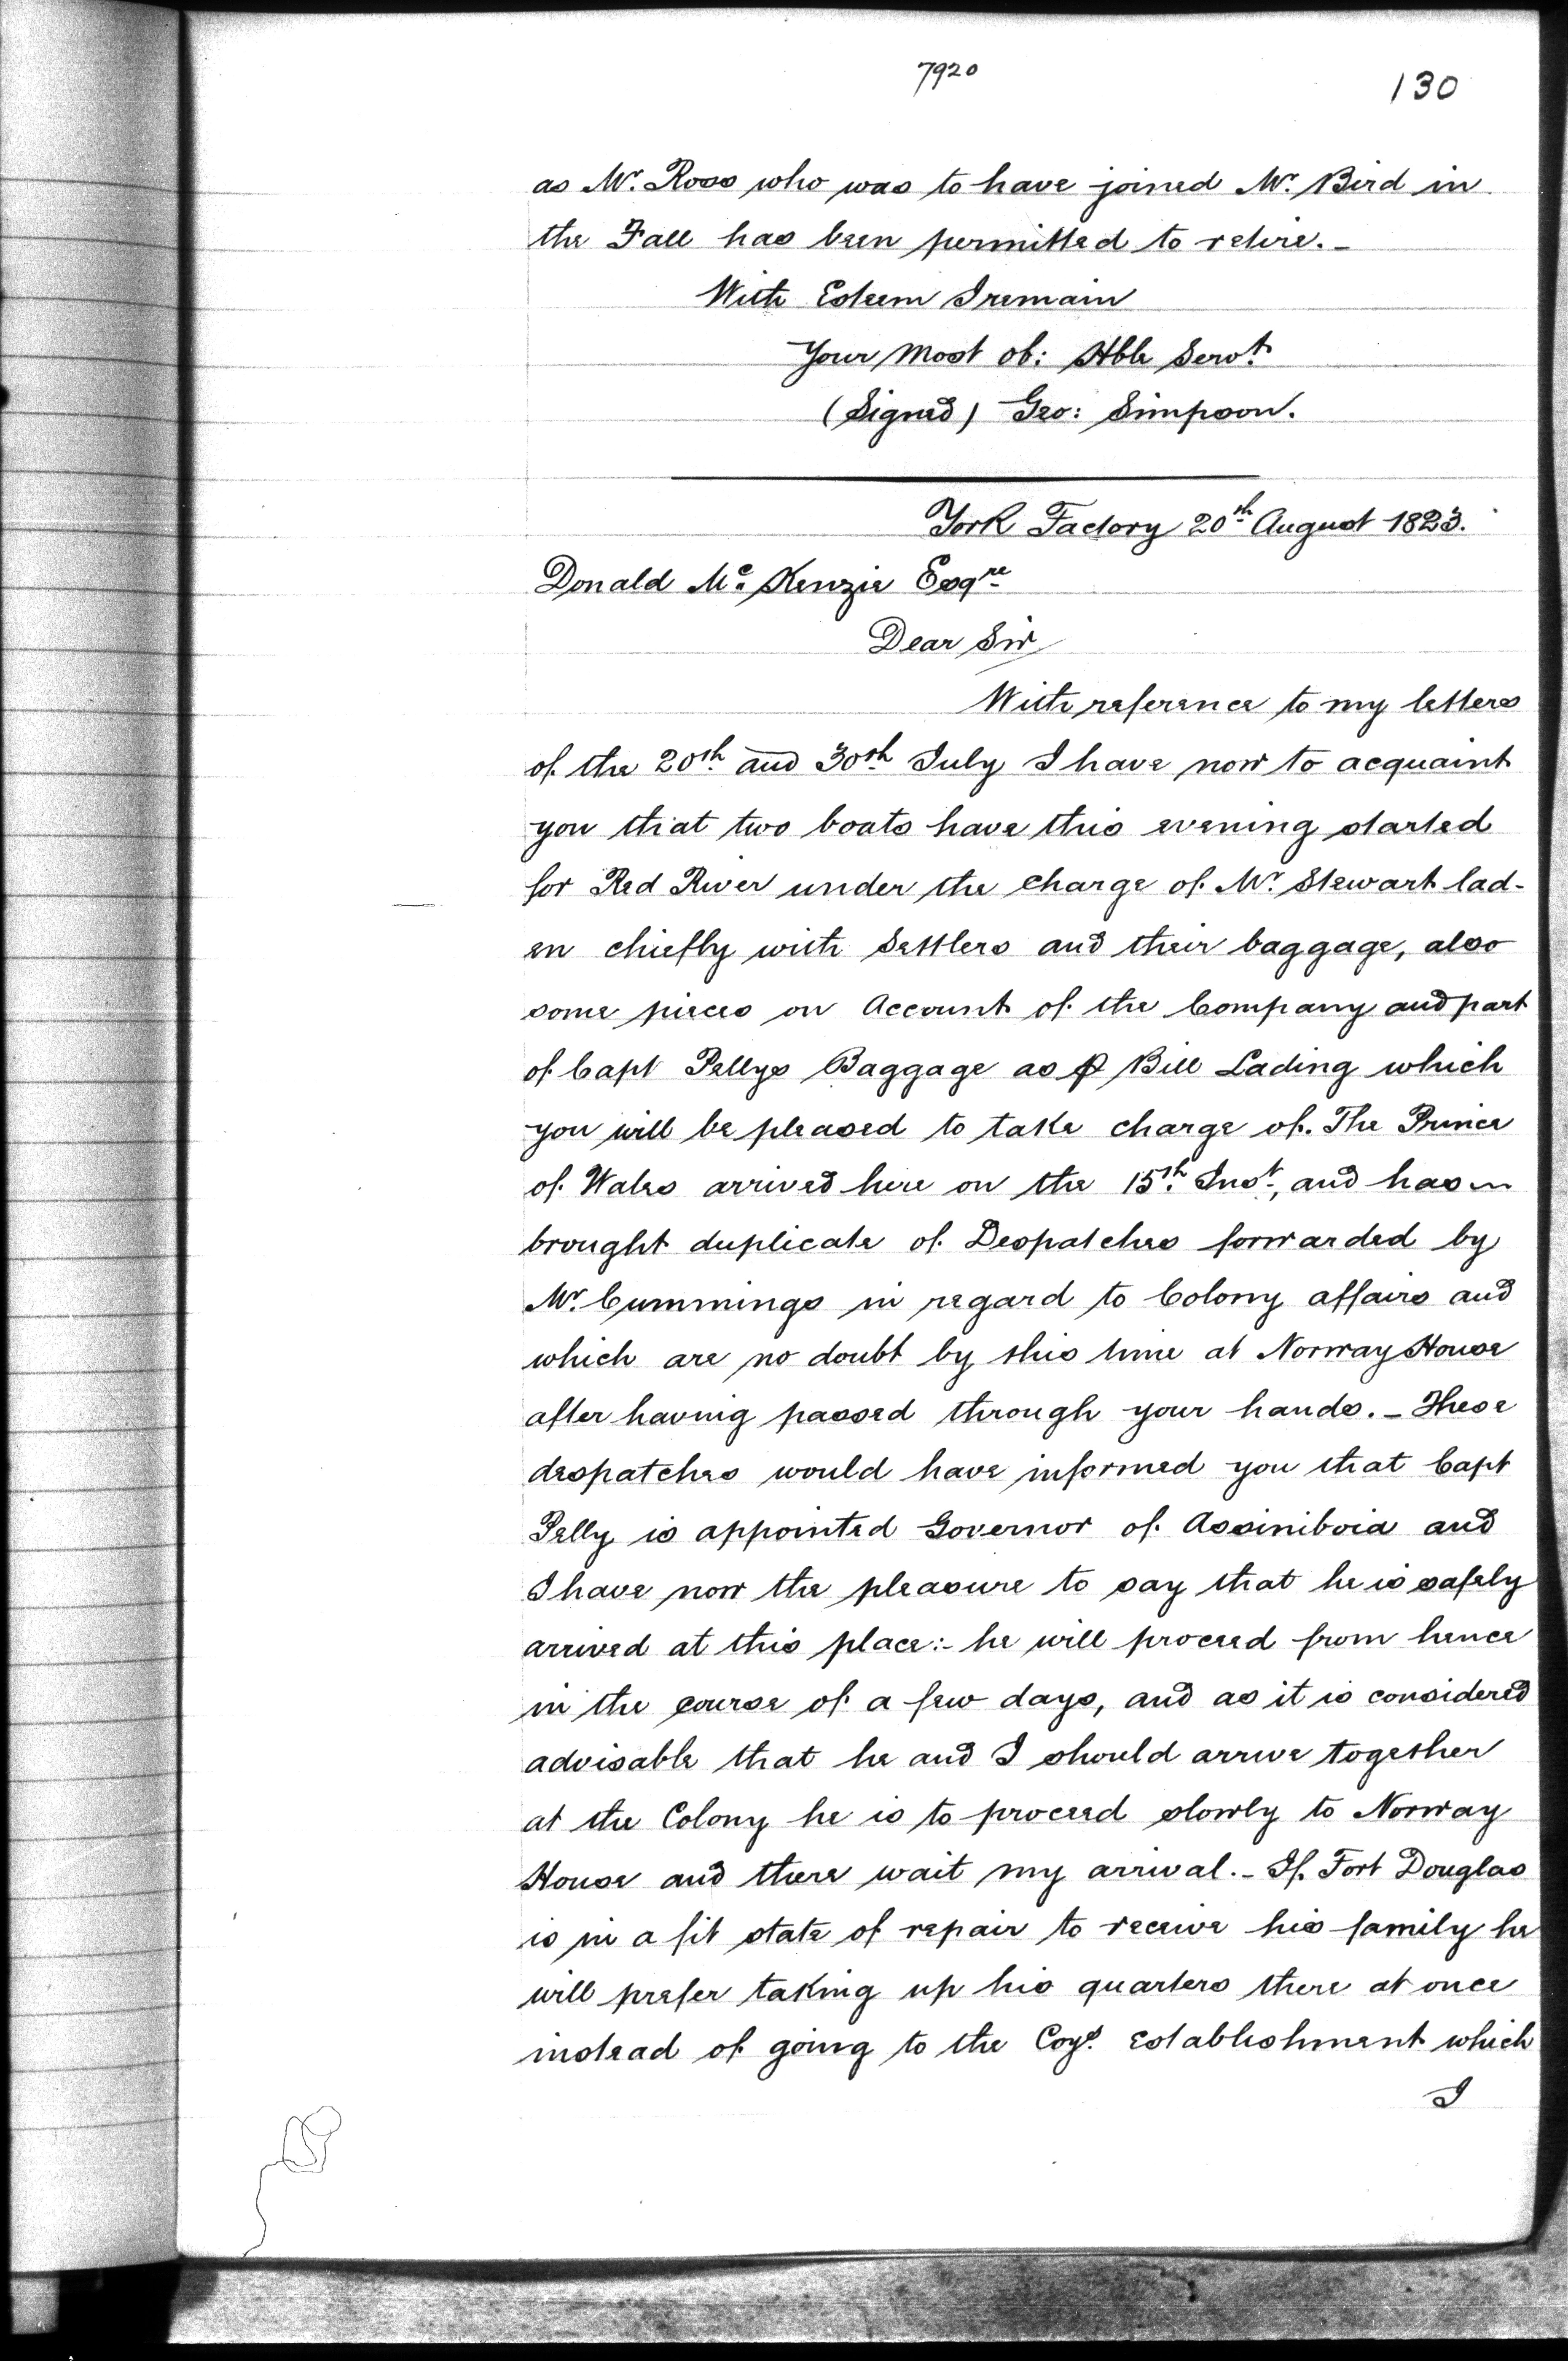 7920
130
as Mr. Ross who was to have joined Mr. Bird in
the Fall has been permitted to retire. -
With Esteem I remain
Your Most ob: Hble Servt.
(Signed) Geo: Simpson.
York Factory 20th August 1823.
Donald Mc. Kenzie Esqre
Dear Sir
With reference to my letters
of the 20th and 30th July I have now to acquaint
you that two boats have this evening started
for Red River under the charge of Mr. Stewart lad-
en chiefly with Settlers and their baggage, also
some pieces on Account of the Company and part
of Capt Pellys Baggage as ⅌ Bill Lading which
you will be pleased to take charge of. The Prince
of Wales arrived here on the 15th. Inst., and has
brought duplicate of Despatches forwarded by
Mr. Cummings in regard to Colony affairs and
which are no doubt by this time at Norway House
after having passed through your hands. - These
despatches would have informed you that Capt
Pelly is appointed Governor of Assiniboia and
I have now the pleasure to say that he is safely
arrived at this place:- he will proceed from hence
in the course of a few days, and as it is considered
advisable that he and I should arrive together
at the Colony he is to proceed slowly to Norway
House and there wait my arrival. - If Fort Douglas
is in a fit state of repair to receive his family he
will prefer taking up his quarters there at once
instead of going to the Coys. establishment which
I